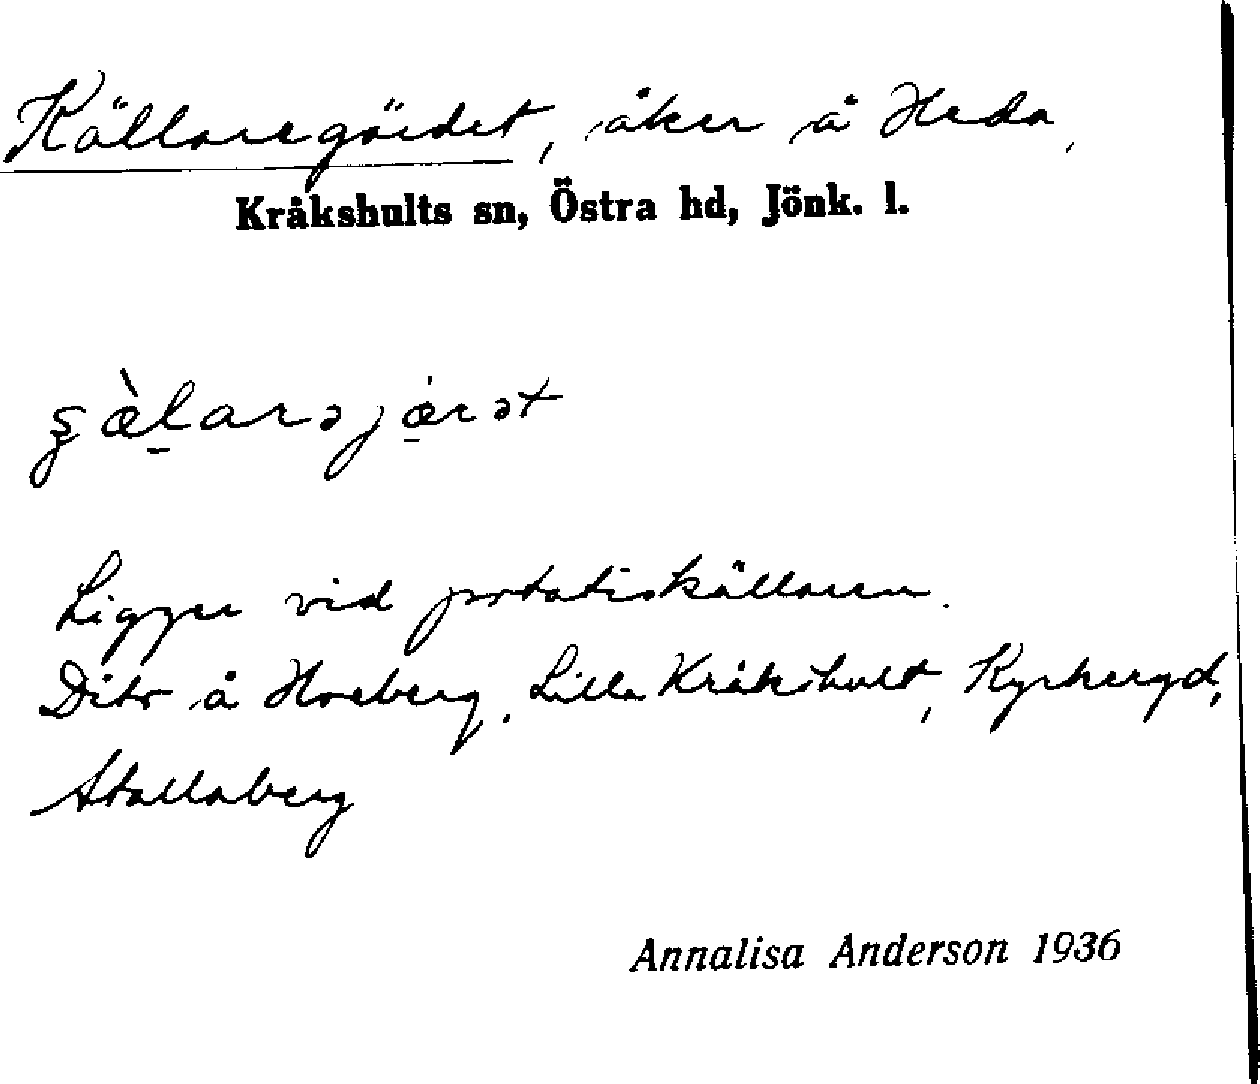 Källaregärdet, åker å Heda,
Kråkshults sn, Östra hd, Jönk. l.
Ligger vid potatiskällaren.
Dito å Hoeberg, Lilla Kråkshult, Kyrkeryd,
Stallaberg
Annalisa Anderson 1936